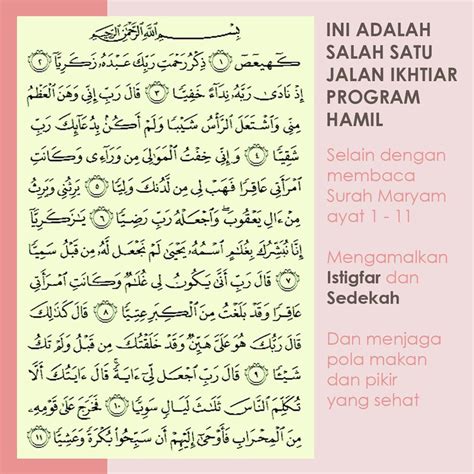 بِسْمِ اللَّهِ الرَّحْمَٰنِ الرَّحِيمِ
كهيعص ١ ذِكْرُ رَحْمَتِ رَبِّكَ عَبْدَهُ زَكَرِيَّا ٢
إِذْ نَادَىٰ رَبَّهُ نِدَاءً خَفِيًّا ٣ قَالَ رَبِّ إِنِّي وَهَنَ الْعَظْمُ
مِنِّي وَاشْتَعَلَ الرَّأْسُ شَيْبًا وَلَمْ أَكُن بِدُعَائِكَ رَبِّ
شَقِيًّا ٤ وَإِنِّي خِفْتُ الْمَوَالِيَ مِن وَرَاءِي وَكَانَتِ
امْرَأَتِي عَاقِرًا فَهَبْ لِي مِن لَّدُنكَ وَلِيًّا ٥ يَرِثُنِي وَيَرِثُ
مِنْ ءَالِ يَعْقُوبَ وَاجْعَلْهُ رَبِّ رَضِيًّا ٦ يَٰزَكَرِيَّا
إِنَّا نُبَشِّرُكَ بِغُلَٰمٍ اسْمُهُ يَحْيَىٰ لَمْ نَجْعَل لَّهُ مِن قَبْلُ سَمِيًّا
٧ قَالَ رَبِّ أَنَّىٰ يَكُونُ لِي غُلَٰمٌ وَكَانَتِ امْرَأَتِي
عَاقِرًا وَقَدْ بَلَغْتُ مِنَ الْكِبَرِ عِتِيًّا ٨ قَالَ كَذَٰلِكَ
قَالَ رَبُّكَ هُوَ عَلَيَّ هَيِّنٌ وَقَدْ خَلَقْتُكَ مِن قَبْلُ وَلَمْ تَكُ
شَيْئًا ٩ قَالَ رَبِّ اجْعَل لِّي ءَايَةً قَالَ ءَايَتُكَ أَلَّا
تُكَلِّمَ النَّاسَ ثَلَٰثَ لَيَالٍ سَوِيًّا ١٠ فَخَرَجَ عَلَىٰ قَوْمِهِ
مِنَ الْمِحْرَابِ فَأَوْحَىٰ إِلَيْهِمْ أَن سَبِّحُوا بُكْرَةً وَعَشِيًّا ١١
INI ADALAH
SALAH SATU
JALAN IKHTIAR
PROGRAM
HAMIL
Selain dengan
membaca
Surah Maryam
ayat 1 - 11
Mengamalkan
Istigfar dan
Sedekah
Dan menjaga
pola makan
dan pikir
yang sehat